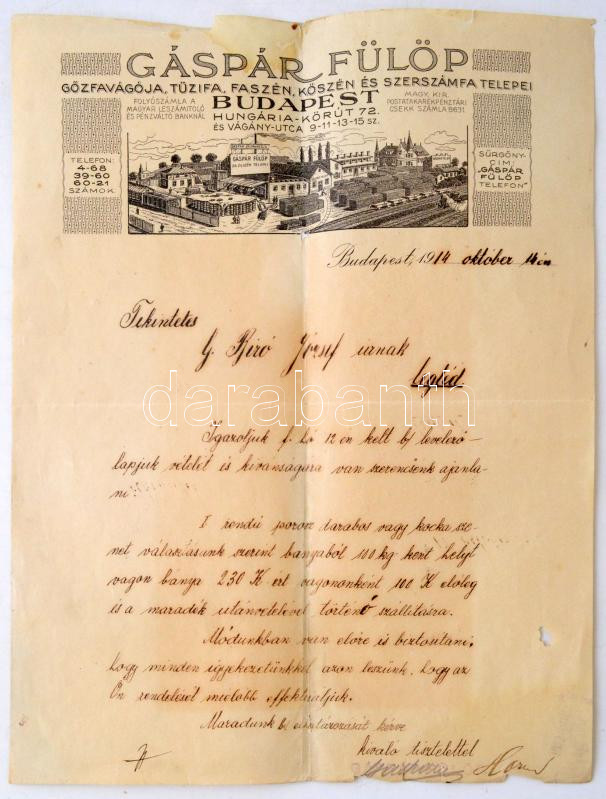 GÁSPÁR FÜLÖP
GŐZFAVÁGÓJA, TŰZIFA, FASZÉN, KŐSZÉN ÉS SZERSZÁMFA TELEPEI
FOLYÓSZÁMLA A
MAGYAR LESZÁMITOLÓ
ÉS PÉNZVÁLTÓ BANKNÁL
BUDAPEST
HUNGÁRIA-KÖRÚT 72.
ÉS VÁGÁNY-UTCA 9-11-13-15 SZ.
MAGY. KIR.
POSTATAKARÉKPÉNZTÁRI
CSEKK SZÁMLA 8631
TELEFON:
4-68
39-60
60-21
SZÁMOK.
GÁSPÁR FÜLÖP
SÜRGÖNY-
CIM:
"GÁSPÁR
FÜLÖP
TELEFON"
Budapest, 1914 október 14 én
Tekintetes
G. Biró József urnak
Czegléd
darabanth
Igazoljuk f. hó 12 en kelt b/ levelező-
lapjuk vételét is kivánságára van szerencsénk ajánla-
ni
I rendü porosz darabos vagy kocka sze-
net választásunk szerint bányából 100 kg ként helyt
vagon bánya 230 K-ért vagononként 100 K előleg
is a maradék utánvételével történő szállitásra.
Módunkban van előre is biztositani,
hogy minden igyekezetünkkel azon leszünk, hogy az
Ön rendelését mielőbb effektuáljuk.
Maradunk b/ elhatározását kérve
kiváló tisztelettel